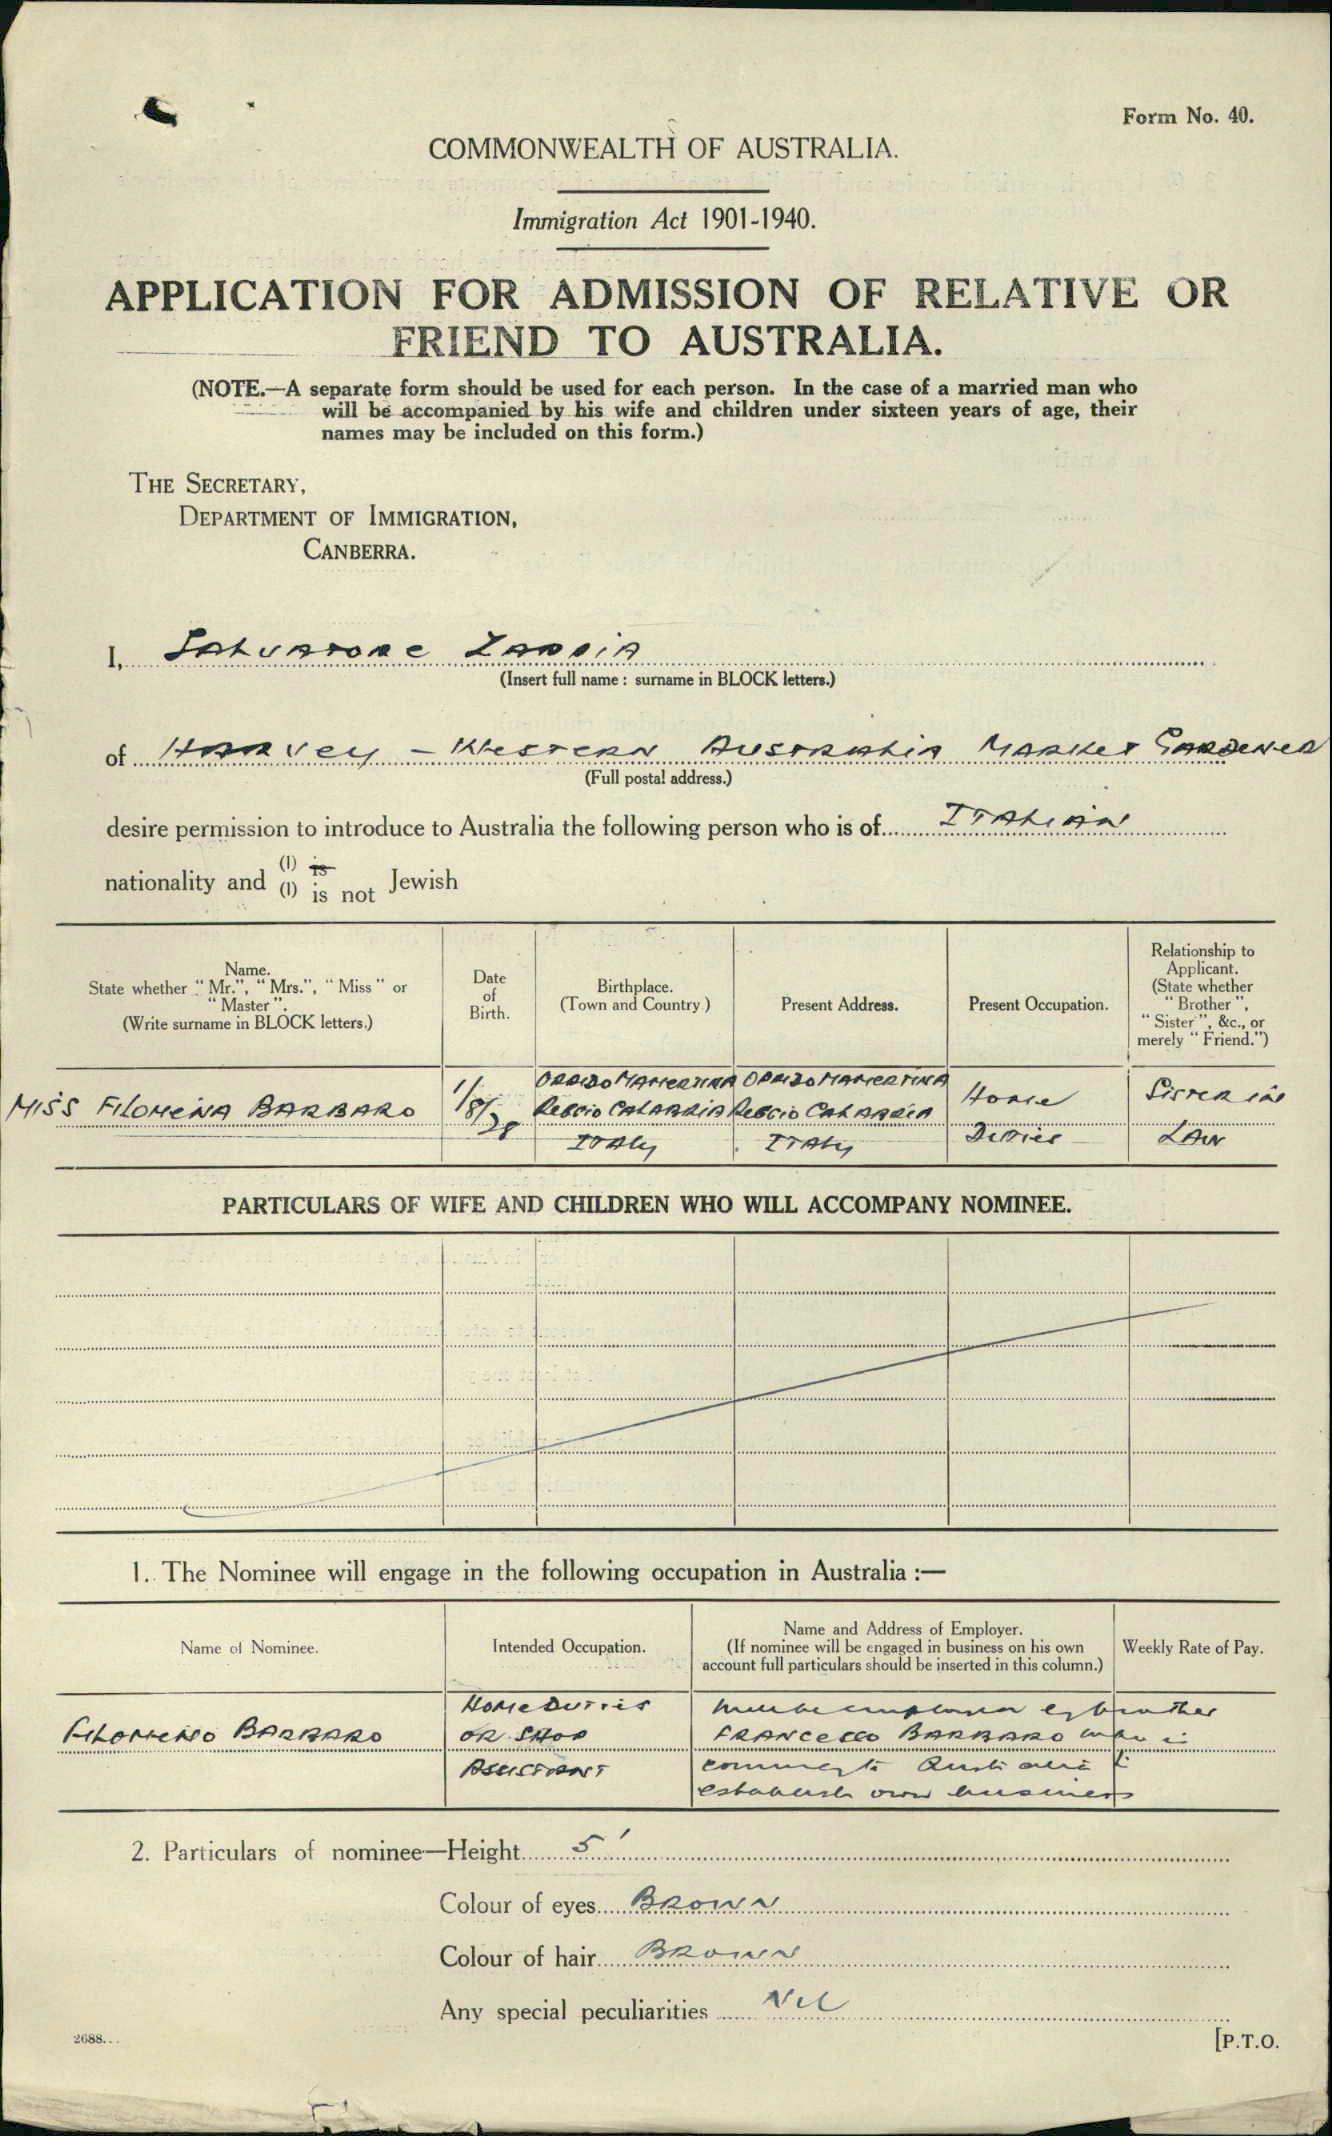 Form No. 40.
COMMONWEALTH OF AUSTRALIA.
Immigration Act 1901-1940.
APPLICATION FOR ADMISSION OF RELATIVE OR
FRIEND TO AUSTRALIA.
(NOTE.—A separate form should be used for each person. In the case of a married man who
will be accompanied by his wife and children under sixteen years of age, their
names may be included on this form.)
THE SECRETARY,
DEPARTMENT OF IMMIGRATION,
CANBERRA.
I, SALVATORE ZAPPIA
(Insert full name : surname in BLOCK letters.)
of HARVEY – WESTERN AUSTRALIA MARKET GARDENER
(Full postal address.)
desire permission to introduce to Australia the following person who is of ITALIAN
nationality and (1) is
(1) is not Jewish
Name.
State whether "Mr.", "Mrs.", "Miss" or
"Master".
(Write surname in BLOCK letters.)
Date
of
Birth.
Birthplace.
(Town and Country.)
Present Address.
Present Occupation.
Relationship to
Applicant.
(State whether
"Brother",
"Sister", &c., or
merely "Friend.")
MISS FILOMENA BARBARO
1/8/28
OPPIDO MAMERTINA
REGGIO CALABRIA
ITALY
OPPIDO MAMERTINA
REGGIO CALABRIA
ITALY
HOME
DUTIES
SISTER IN
LAW
PARTICULARS OF WIFE AND CHILDREN WHO WILL ACCOMPANY NOMINEE.
1. The Nominee will engage in the following occupation in Australia :—
Name of Nominee.
Intended Occupation.
Name and Address of Employer.
(If nominee will be engaged in business on his own
account full particulars should be inserted in this column.)
Weekly Rate of Pay.
FILOMENO BARBARO
HOME DUTIES
OR SHOP
ASSISTANT
will be employed by brother
FRANCESCO BARBARO who is
coming to Australia to
establish own business
2. Particulars of nominee—Height 5'
Colour of eyes BROWN
Colour of hair BROWN
Any special peculiarities Nil
2688...
[P.T.O.